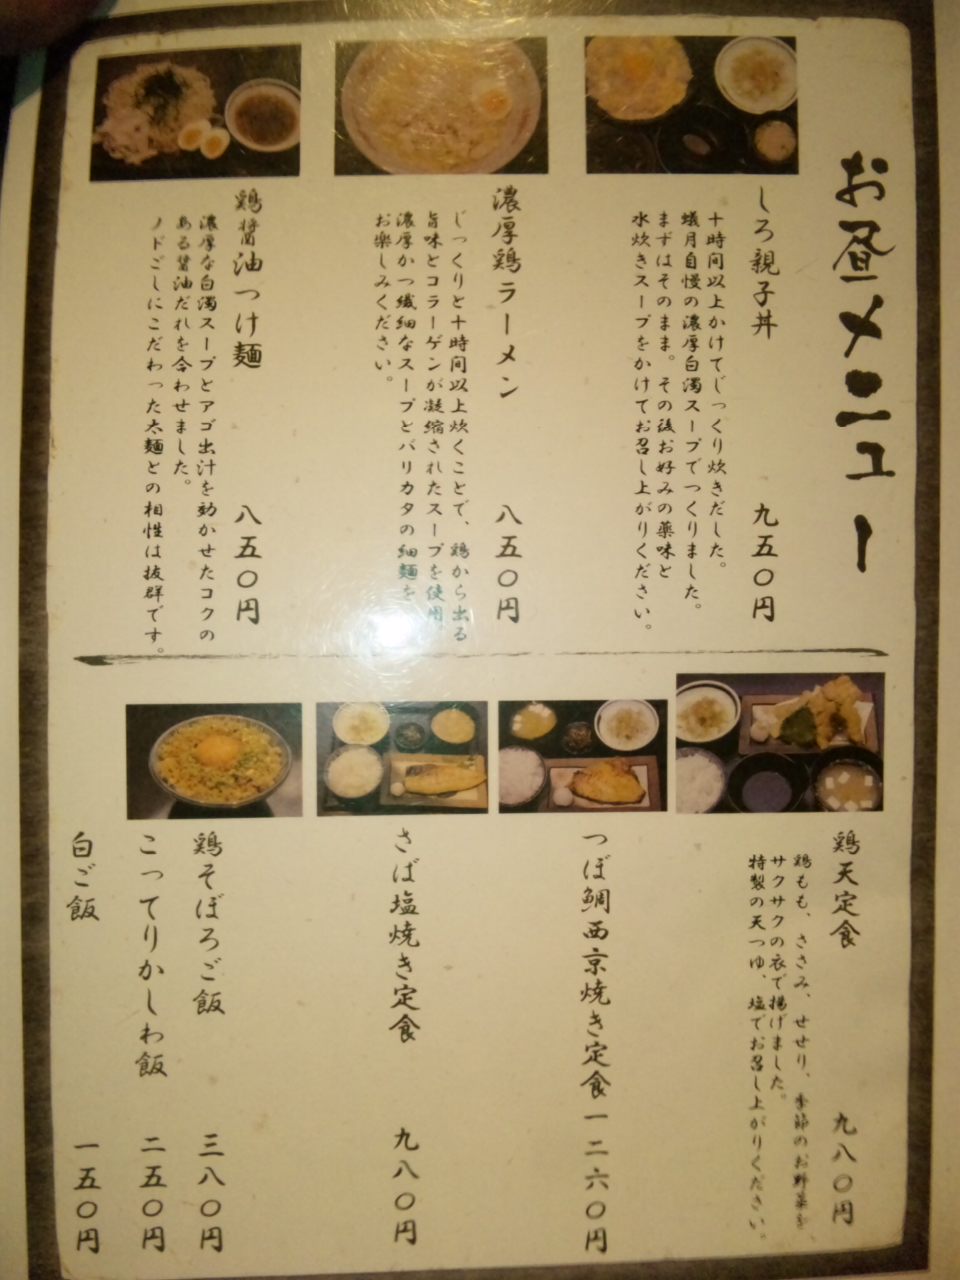 お昼メニュー
しろ親子丼 九五〇円
十時間以上かけてじっくり炊きだした。
蟻月自慢の濃厚白濁スープでつくりました。
まずはそのまま。その後お好みの薬味と
水炊きスープをかけてお召し上がりください。
濃厚鶏ラーメン 八五〇円
じっくりと十時間以上炊くことで、鶏から出る
旨味とコラーゲンが凝縮されたスープを使用。
濃厚かつ繊細なスープとバリカタの細麺を
お楽しみください。
鶏醤油つけ麺 八五〇円
濃厚な白濁スープとアゴ出汁を効かせたコクの
ある醤油だれを合わせました。
ノドごしにこだわった太麺との相性は抜群です。
鶏天定食 九八〇円
鶏もも、ささみ、せせり、季節のお野菜を
サクサクの衣で揚げました。
特製の天つゆ、塩でお召し上がりください。
つぼ鯛西京焼き定食 一二六〇円
さば塩焼き定食 九八〇円
鶏そぼろご飯 三八〇円
こってりかしわ飯 二五〇円
白ご飯 一五〇円